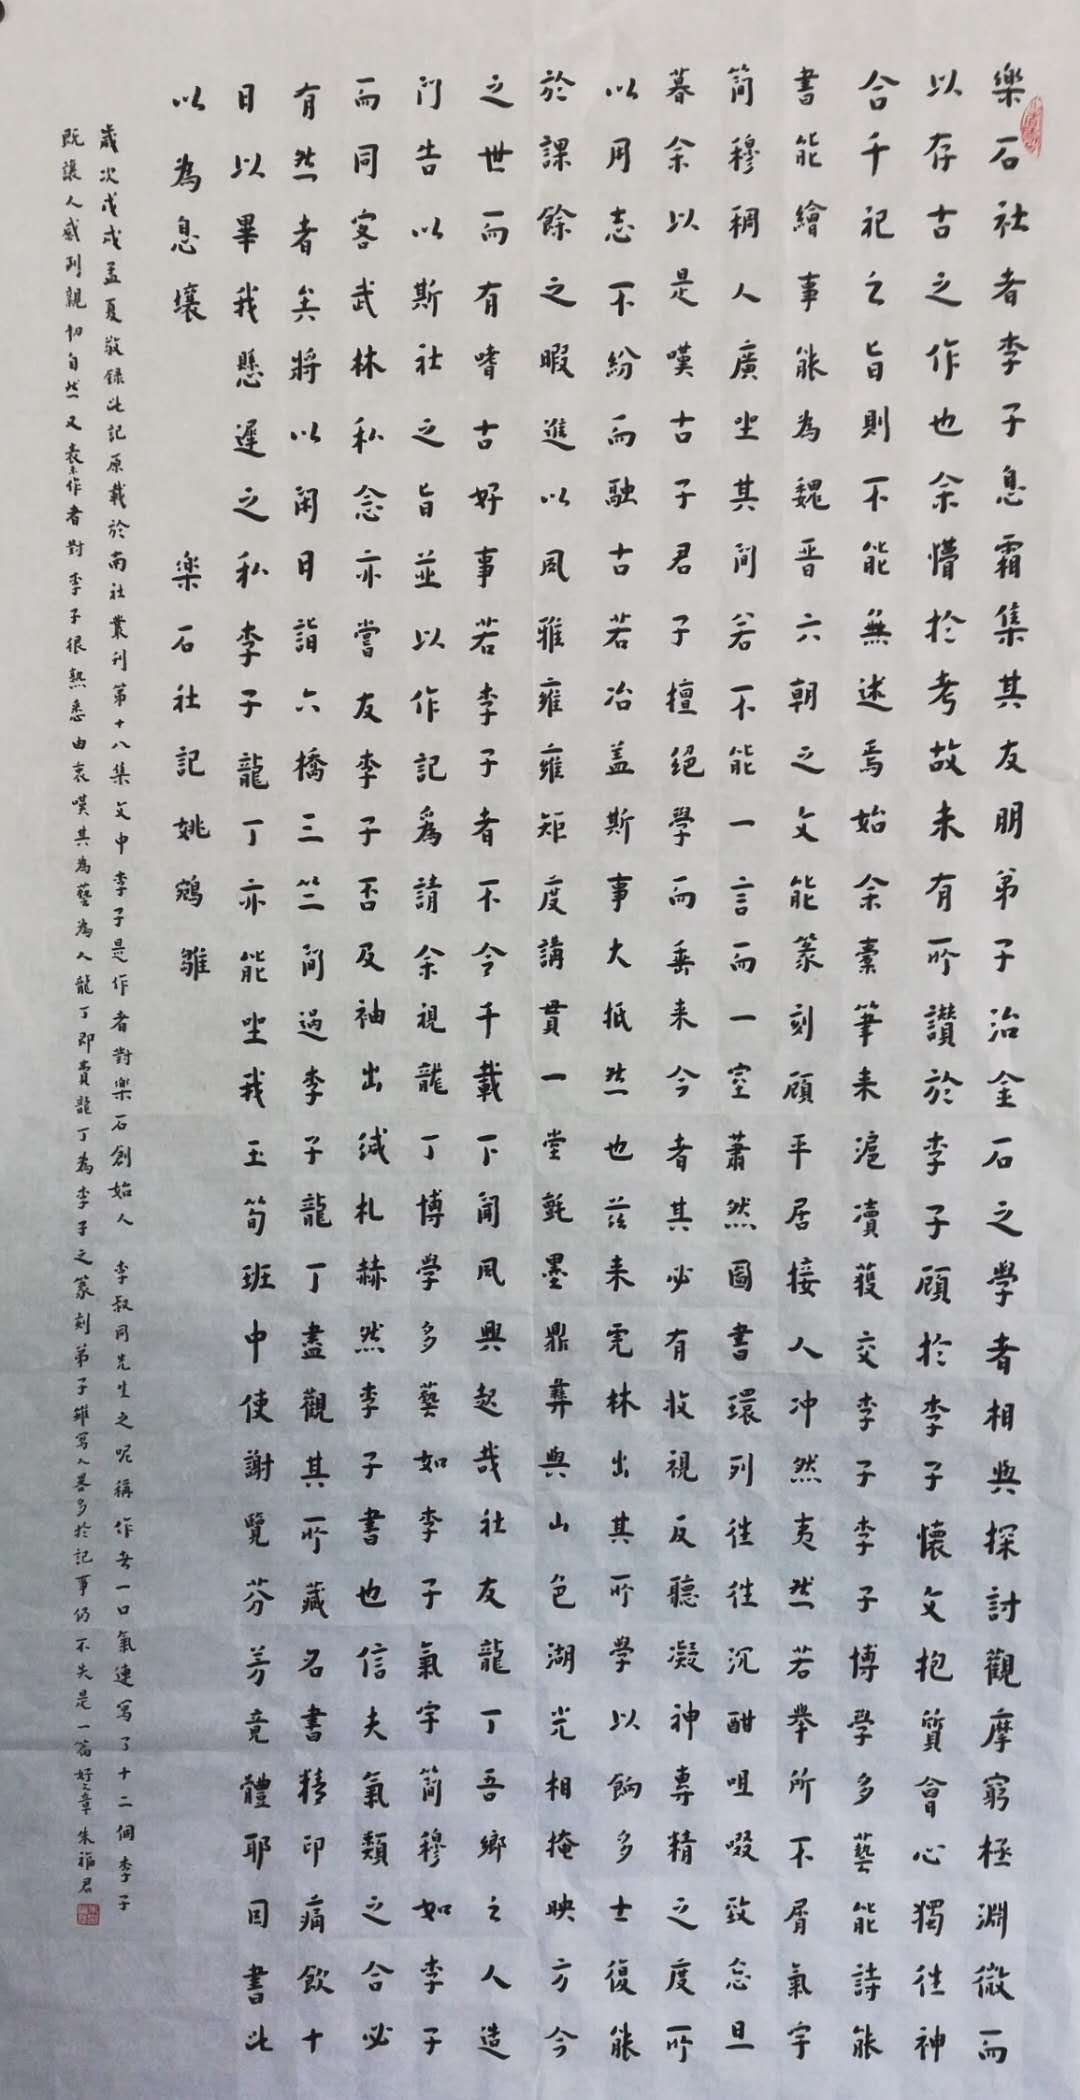 樂石社者李子息霜集其友朋弟子治金石之學者相與探討觀摩窮極淵微而
以存古之作也余懵於考故未有所讚於李子顧於李子懷文抱質會心獨往神
合千祀之旨則不能無述焉始余橐筆来滬瀆獲交李子李子博學多藝能詩能
書能繪事能為魏晋六朝之文能篆刻顧平居接人冲然夷然若舉所不屑氣宇
簡穆稠人廣坐其間若不能一言而一室蕭然圖書環列往往沉酣咀啜致忘旦
暮余以是嘆古子君子擅絕學而垂来今者其必有收視反聽凝神專精之度所
以用志不紛而融古若冶盖斯事大抵然也茲来虎林出其所學以餉多士復能
於課餘之暇進以風雅雍雍矩度講貫一堂氈墨鼎彝與山色湖光相掩映方今
之世而有嗜古好事若李子者不令千載下聞風興起哉社友龍丁吾鄉之人造
門告以斯社之旨並以作記為請余視龍丁博學多藝如李子氣宇簡穆如李子
而同客武林私念亦嘗友李子否及袖出緘札赫然李子書也信夫氣類之合必
有然者矣將以閑日詣六橋三竺間過李子龍丁盡觀其所藏名書精印痛飲十
日以畢我懸遲之私李子龍丁亦能坐我玉筍班中使謝覽芬芳竟體耶因書此
以為息壤　樂石社記姚鵷雛
歲次戊戌孟夏敬錄此記原載於南社叢刊第十八集文中李子是作者對樂石創始人李叔同先生之昵稱作者一口氣連寫了十二個李子
既讓人感到親切自然又表示作者對李子很熟悉由衷嘆其為藝為人龍丁即費龍丁為李子之篆刻弟子雖寫人甚多於記事仍不失是一篇好文章朱福君